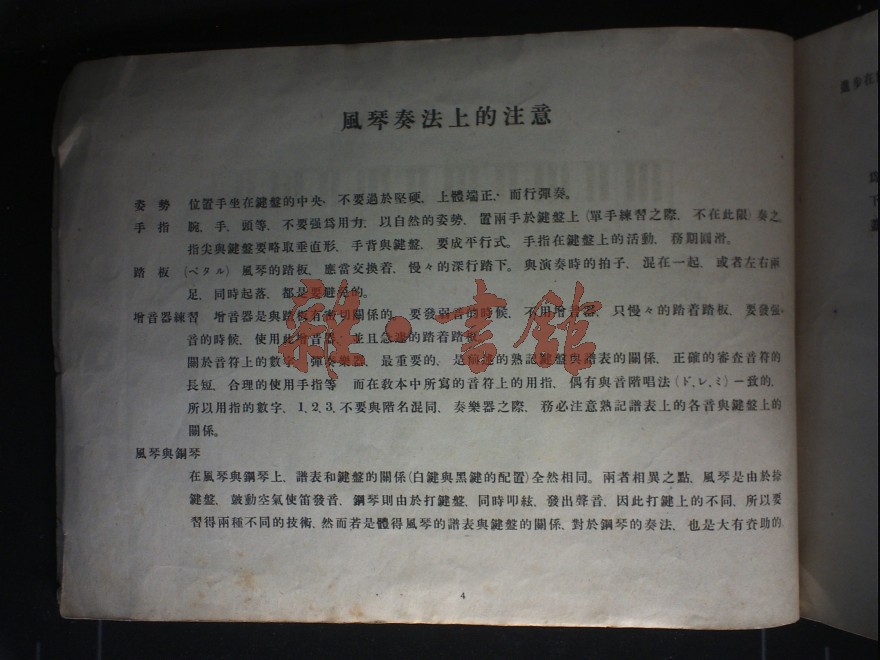 風琴奏法上的注意
姿勢 位置手坐在鍵盤的中央, 不要過於堅硬, 上體端正, 而行彈奏。
手指 腕, 手, 頭等, 不要强爲用力, 以自然的姿勢, 置兩手於鍵盤上(單手練習之際, 不在此限)奏之,
指尖與鍵盤要略取垂直形, 手背與鍵盤, 要成平行式。手指在鍵盤上的活動, 務期圓滑。
踏板 (ペタル) 風琴的踏板, 應當交換着, 慢々的深行踏下。與演奏時的拍子, 混在一起, 或者左右兩
足, 同時起落, 都是要避免的。
增音器練習 增音器是與踏板有密切關係的, 要發弱音的時候, 不用增音器, 只慢々的踏着踏板, 要發强
音的時候, 使用此增音器, 並且急速的踏着踏板。
關於音符上的數字, 彈奏樂器, 最重要的, 是的熟記鍵盤與譜表的關係, 正確的審查音符的
長短, 合理的使用手指等, 而在敎本中所寫的音符上的用指, 偶有與音階唱法(ド,レ,ミ)一致的,
所以用指的數字, 1, 2, 3, 不要與階名混同, 奏樂器之際, 務必注意熟記譜表上的各音與鍵盤上的
關係。
風琴與鋼琴
在風琴與鋼琴上, 譜表和鍵盤的關係(白鍵與黑鍵的配置)全然相同。兩者相異之點, 風琴是由於捺
鍵盤, 鼓動空氣使笛發音, 鋼琴則由於打鍵盤, 同時叩絃, 發出聲音, 因此打鍵上的不同, 所以要
習得兩種不同的技術, 然而若是體得風琴的譜表與鍵盤的關係, 對於鋼琴的奏法, 也是大有資助的,
4
雜·書館
進步在